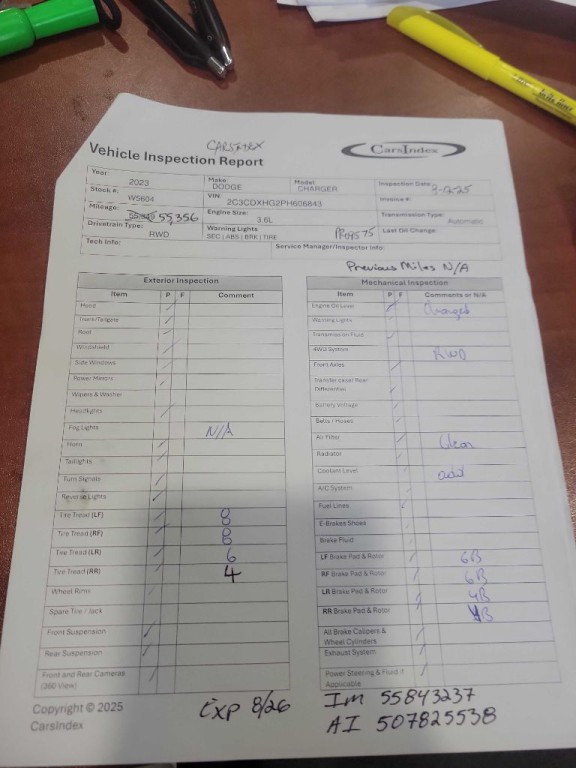 CARSTRX
Vehicle Inspection Report
CarsIndex
Year: 2023 Make: DODGE Model: CHARGER Inspection Date:
Stock #: W5604 VIN: 2C3CDXHG2PH606843 Invoice #:
Mileage: 55,356 Engine Size: 3.6L Transmission Type: Automatic
Drivetrain Type: RWD Warning Lights SEC | ABS | BRK | TIRE Last Oil Change:
Tech Info: Service Manager/Inspector Info:
Previous Miles N/A
Exterior Inspection
Item P F Comment
Hood
Trunk/Tailgate
Roof
Windshield
Side Windows
Power Mirrors
Wipers & Washer
Headlights
Fog Lights N/A
Horn
Taillights
Turn Signals
Reverse Lights
Tire Tread (LF) 8
Tire Tread (RF) 8
Tire Tread (LR) 6
Tire Tread (RR) 4
Wheel Rims
Spare Tire / Jack
Front Suspension
Rear Suspension
Front and Rear Cameras
(360 View)
Mechanical Inspection
Item P F Comments or N/A
Engine Oil Level Changed
Warning Lights
Transmission Fluid
4WD System RWD
Front Axles
Transfer Case/ Rear
Differential
Battery Voltage
Belts / Hoses
Air Filter Clean
Radiator
Coolant Level add
A/C System
Fuel Lines
E-Brakes Shoes
Brake Fluid
LF Brake Pad & Rotor 6B
RF Brake Pad & Rotor 6B
LR Brake Pad & Rotor 4B
RR Brake Pad & Rotor 4B
All Brake Calipers &
Wheel Cylinders
Exhaust System
Power Steering & Fluid if
Applicable
Copyright © 2025
CarsIndex
EXP 8/26
IM 55843237
AI 507825538